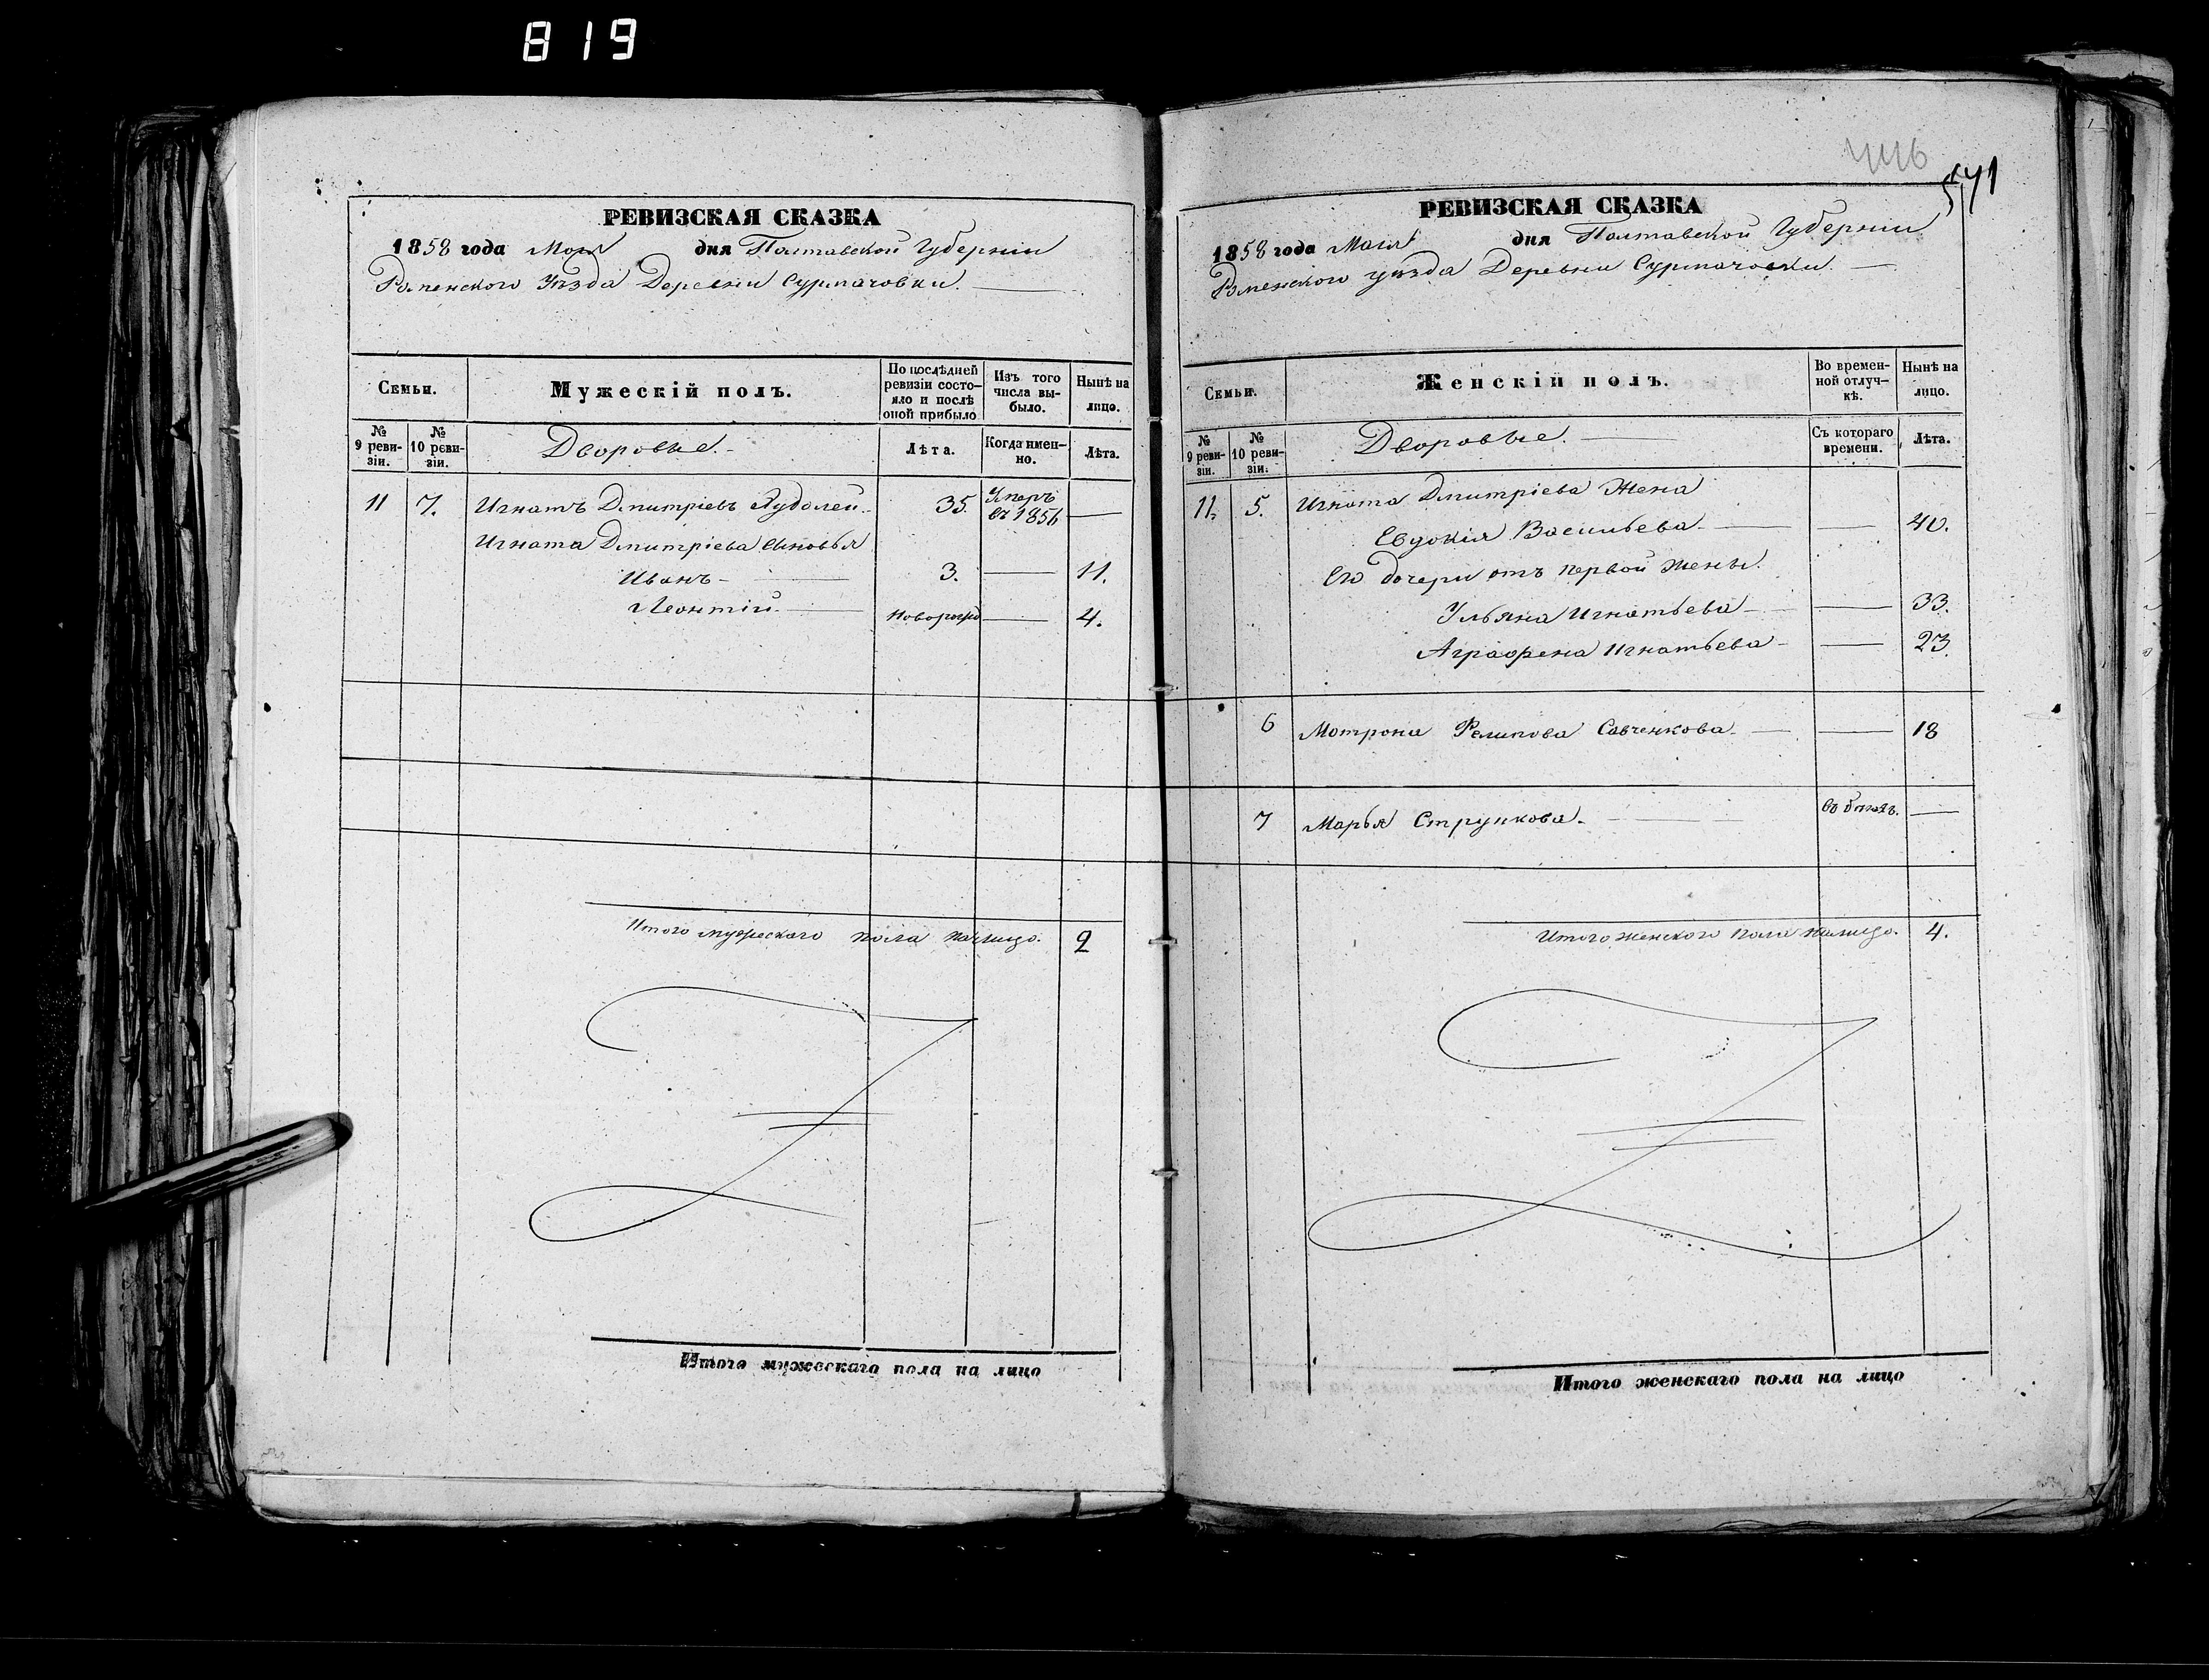 819
РЕВИЗСКАЯ СКАЗКА
1858 года Мая дня Полтавской Губерніи
Роменского Уѣзда Деревни Сурмачовки.
Семьи.
Мужескій полъ.
По послѣдней ревизіи состояло и послѣ оной прибыло
Изъ того числа выбыло.
Нынѣ на лицо.
№ 9 ревизіи.
№ 10 ревизіи.
Дворовые.
Лѣта.
Когда именно.
Лѣта.
11 7. Игнатъ Дмитріевъ 35. Умеръ въ 1856
Игната Дмитріева сыновья
Иванъ 3. 11.
Леонтій новорожд 4.
Итого мужеского пола налицо. 2
Итого мужескаго пола на лицо
446
541
РЕВИЗСКАЯ СКАЗКА
1858 года Мая дня Полтавской Губерніи
Роменского уѣзда Деревни Сурмачовки.
Семьи.
Женскій полъ.
Во временной отлучкѣ.
Нынѣ на лицо.
№ 9 ревизіи.
№ 10 ревизіи.
Дворовые.
Съ котораго времени.
Лѣта.
11. 5. Игната Дмитріева Жена
Евдокія Васильева 40.
Его дочери отъ первой жены.
Ульяна Игнатьева 33.
Аграфена Игнатьева 23.
6 Мотрона Филипова Савченкова 18
7 Марья Струпкова. въ бѣгахъ.
Итого женского пола налицо. 4.
Итого женскаго пола на лицо